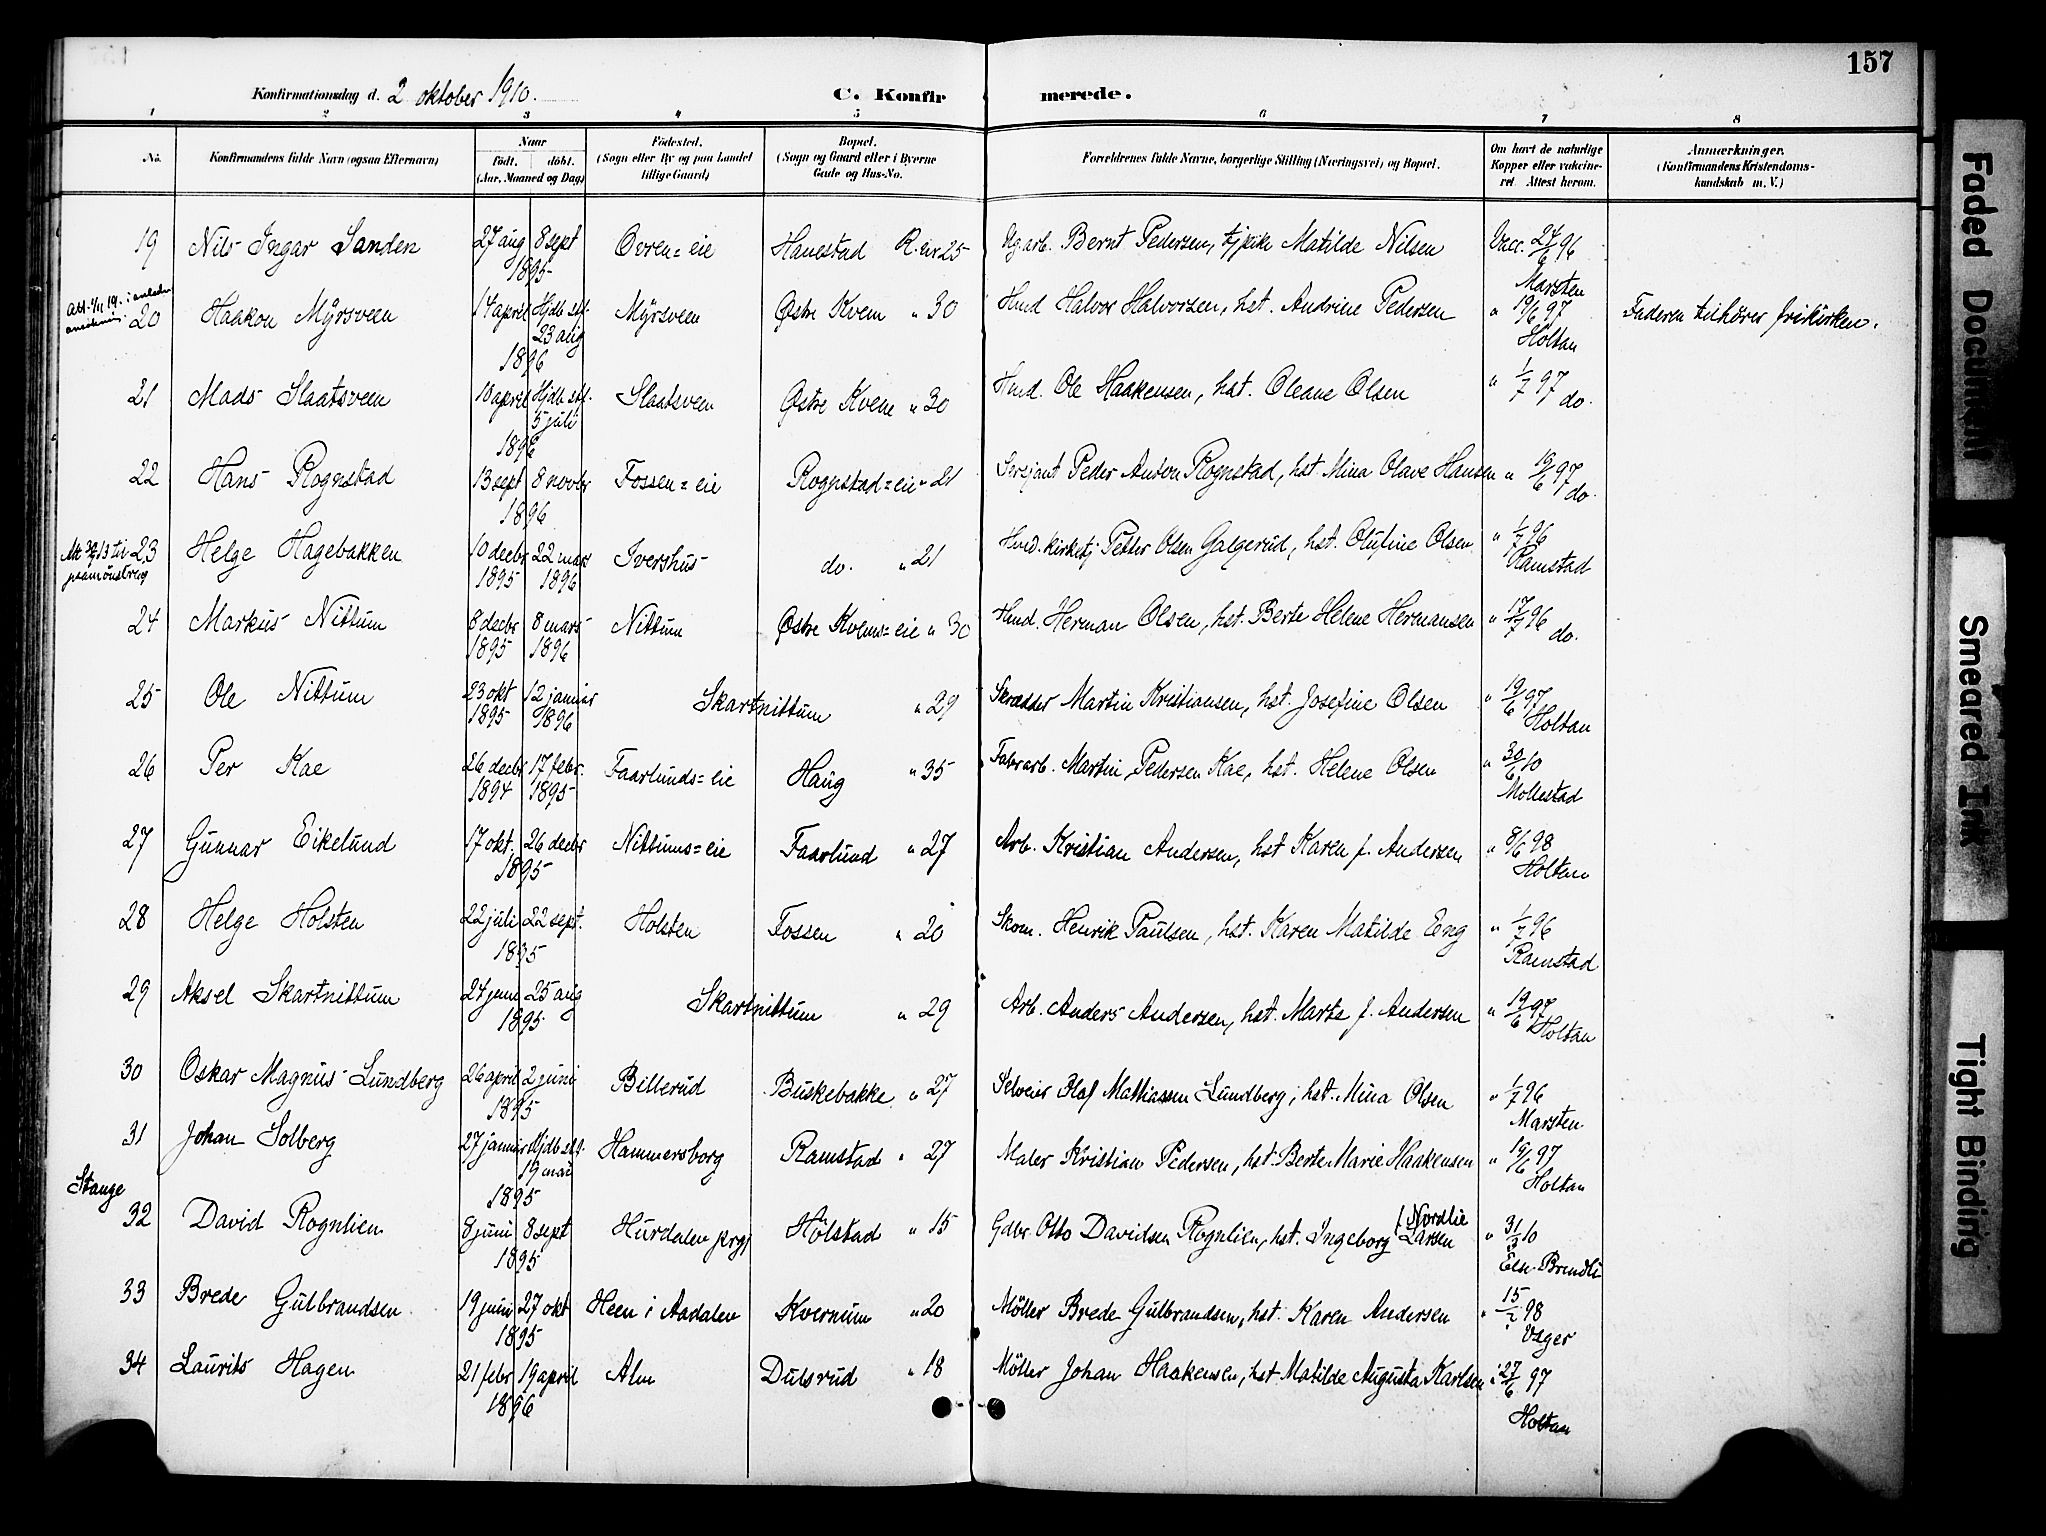 157
Konfirmationsdag d. 2 oktober 1910. C. Konfir merede.
1 2 3 4 5 6 7 8
No. Konfirmandens fulde Navn (ogsaa Efternavn) Naar født. døbt. (Aar, Maaned og Dag) Fødested. (Sogn eller By og paa Landet tillige Gaard) Bopæl. (Sogn og Gaard eller i Byerne Gade og Hus-No. Forældrenes fulde Navne, borgerlige Stilling (Næringsvei) og Bopæl. Om havt de naturlige Kopper eller vakcineret. Attest herom. Anmærkninger. (Konfirmandens Kristendomskundskab m. V.)
19 Nils Ingar Sanden 27 aug 8 sept 1895 Ovren=eie Hanestad R. nr 25 Ug arb. Bernt Pedersen, tjpike Matilde Nilsen Vacc. 24/6 96 Marsten
20 Haakon Myrsveen 14 april Hjdb stf. 23 aug 1896 Myrsveen Østre Kvem " 30 Hmd Halvor Halvorsen, hst. Andrine Pedersen " 19/6 97 Holtan Faderen tilhører frikirken.
21 Mads Slaatsveen 10 april Hjdb stf. 5 juli 1896 Slaatsveen Østre Kvem " 30 Hmd. Ole Haakensen, hst. Oleane Olsen " 1/7 97 do.
22 Hans Rognstad 13 sept 8 novbr 1896 Fossen=eie Rognstad=eie " 21 Sersjant Peder Anton Rognstad, hst. Mina Olave Hansen " 19/6 97 do.
23 Helge Hagebakken 10 decbr 1895 22 mars 1896 Ivershus do. " 21 Hmd. kirketj. Petter Olsen Galgerud, hst. Olufine Olsen " 1/7 96 Ramstad
24 Markus Nittum 8 decbr 1895 8 mars 1896 Nittum Østre Kvems=eie " 30 Hmd. Herman Olsen, hst. Berte Helene Hermansen " 17/7 96 do.
25 Ole Nittum 23 okt 1895 12 januar 1896 Skartnittum " 29 Skrædder Martin Kristiansen, hst. Josefine Olsen " 19/6 97 Holtan
26 Per Kae 26 decbr 1894 17 febr. 1895 Faarlunds=eie Haug " 35 Fabrarb. Martin Pedersen Kae, hst. Helene Olsen " 30/6 10 Mollestad
27 Gunnar Eikelund 17 okt. 26 decbr 1895 Nittums=eie Faarlund " 27 Arb. Kristian Andersen, hst Karen f. Andersen " 8/6 98 Holtan
28 Helge Holsten 22 juli 22 sept. 1895 Holsten Fossen " 20 Skom. Henrik Paulsen, hst. Karen Matilde Eng " 1/7 96 Ramstad
29 Aksel Skartnittum 24 juni 25 aug 1895 Skartnittum " 29 Arb. Anders Andersen, hst. Marte f. Andersen " 19/6 97 Holtan
30 Oskar Magnus Lundberg 26 april 2 juni 1895 Billerud Buskebakke " 27 Selveier Olaf Mathiassen Lundberg, hst. Mina Olsen " 1/7 96 Marsten
31 Johan Solberg 27 januar Hjdb stf. 19 mai 1895 Hammersborg Ramstad " 27 Maler Kristian Pedersen, hst. Berte Marie Haakensen " 19/6 97 Holtan
Stange
32 David Rognlien 8 juni 8 sept 1895 Hurdalen prgj Holstad " 15 Gdbr. Otto Davidsen Rognlien, hst. Ingeborg Larsen (Nordlie " 31/3 10
33 Brede Gulbrandsen 19 juni 27 okt 1895 Heen i Aadalen Kvernum " 20 Møller Brede Gulbrandsen, hst. Karen Andersen " 15/7 98
34 Laurits Hagen 21 febr 19 april 1896 Alm Dulsrud " 18 Møller Johan Haakensen, hst. Matilde Augusta Karlsen " 27/6 97 Holtan
Faded Document
Smeared Ink
Tight Binding